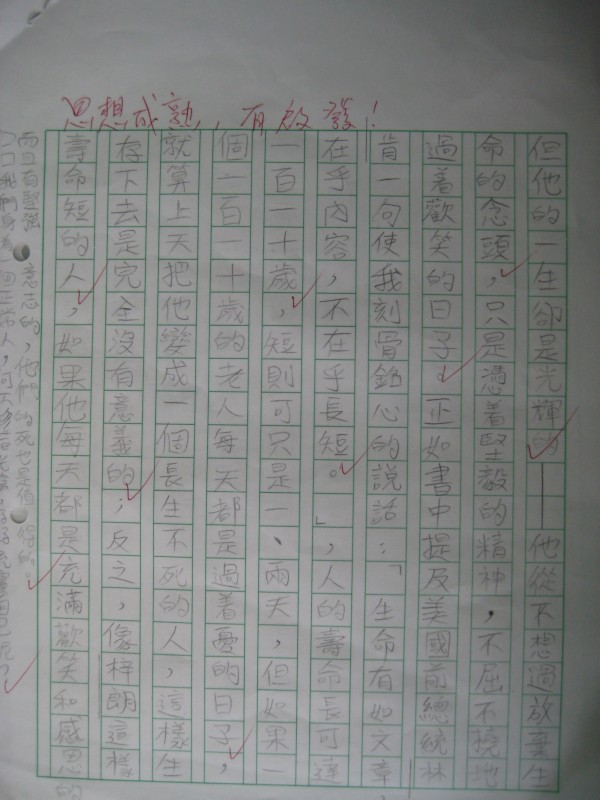 思想成熟，有啟發！
但他的一生卻是光輝的——他從不想過放棄生
命的念頭，只是憑着堅毅的精神，不屈不撓地
過着歡笑的日子。正如書中提及美國前總統林
肯一句使我刻骨銘心的說話：「生命有如文章，
在乎內容，不在乎長短。」，人的壽命長可達
一百一十歲，短則可只是一、兩天，但如果一
個一百一十歲的老人每天都是過着憂的日子，
就算上天把他變成一個長生不死的人，這樣生
存下去是完全沒有意義的；反之，像梓朗這樣
壽命短的人，如果他每天都是充滿歡笑和感恩的
而且有堅強意志的，他們的死也是值得的。
我們身為一個正常人，可不